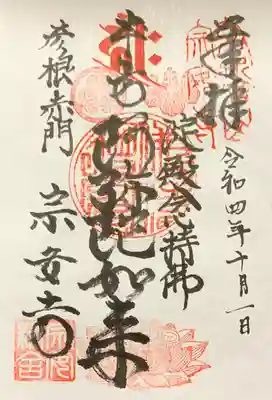 奉拝
令和四年十月一日
淀殿念持佛
阿弥陀如来
彦根赤門
宗安寺